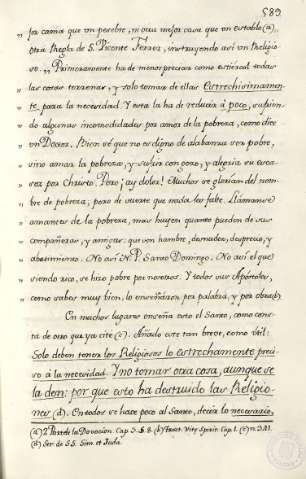 589.
„ ra cama que un pesebre, ni otra mejor casa que un establo (a).
„ Otra Regla de S. Vicente Ferrer, instruyendo así un Religio-
„ so. „ Primeramente ha de menospreciar como estiércol todas
„ las cosas terrenas, y solo tomar de ellas Estrechísimamen-
„ te para la necesidad. Y esta la ha de reducir á poco, sufrien-
„ do algunas incomodidades por amor de la pobreza, como dice
„ un Doctor. Bien sé que no es digno de alabanza ser pobre,
„ sino amar la pobreza, y sufrir con gozo, y alegría su esca-
„ sez por Christo. Pero ¡ay dolor! Muchos se glorían del nom-
„ bre de pobreza; pero de suerte que nada les falte. Llamanse
„ amantes de la pobreza, mas huyen quanto pueden de sus
„ compañeras, y amigas: que son hambre, desnudez, desprecio, y
„ abatimiento. No así N. P. Santo Domingo. No así el que
„ siendo rico, se hizo pobre por nosotros. Y todos sus Apóstoles,
„ como sabes muy bien, lo enseñáron por palabra, y por obra (b)
En muchos lugares enseña esto el Santo, como cons-
ta de otro que ya cité (c). Añado este tan breve, como útil:
Solo deben tomar los Religiosos lo estrechamente preci-
so á la necesidad. Y no tomar otra cosa, aunque se
la den: por que esto ha destruido las Religio-
nes (d). En todos se hace poco al Santo, decía lo necesario,
(a) 2 Part. de la Devocion. Cap. 3. §. 8. (b) Tract. Vitæ Spirit. Cap. 1. (c) n. 381.
(d) Ser. de SS. Sim. et Juda.